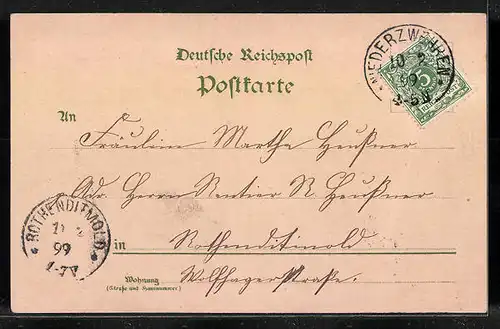 Deutsche Reichspost
Postkarte
NIEDERZWEHREN
99
5
An
Fräulein Marthe Heußner
Adr. Herrn Rentier R Heußner
in Rothenditmold
Wohnung
(Straße und Hausnummer)
Wolfhagerstraße.
ROTHENDITMOLD
99